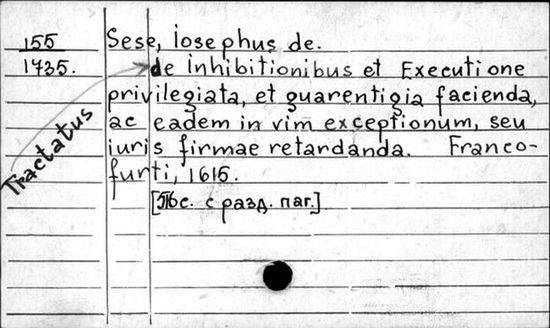 155
1735.
Tractatus
Sese, iosephus de.
de inhibitionibus et Executione
privilegiata, et guarentigia facienda,
ac eadem in vim exceptionum, seu
iuris firmae retardanda. Franco-
furti, 1615.
[516с. с разд. паг.]